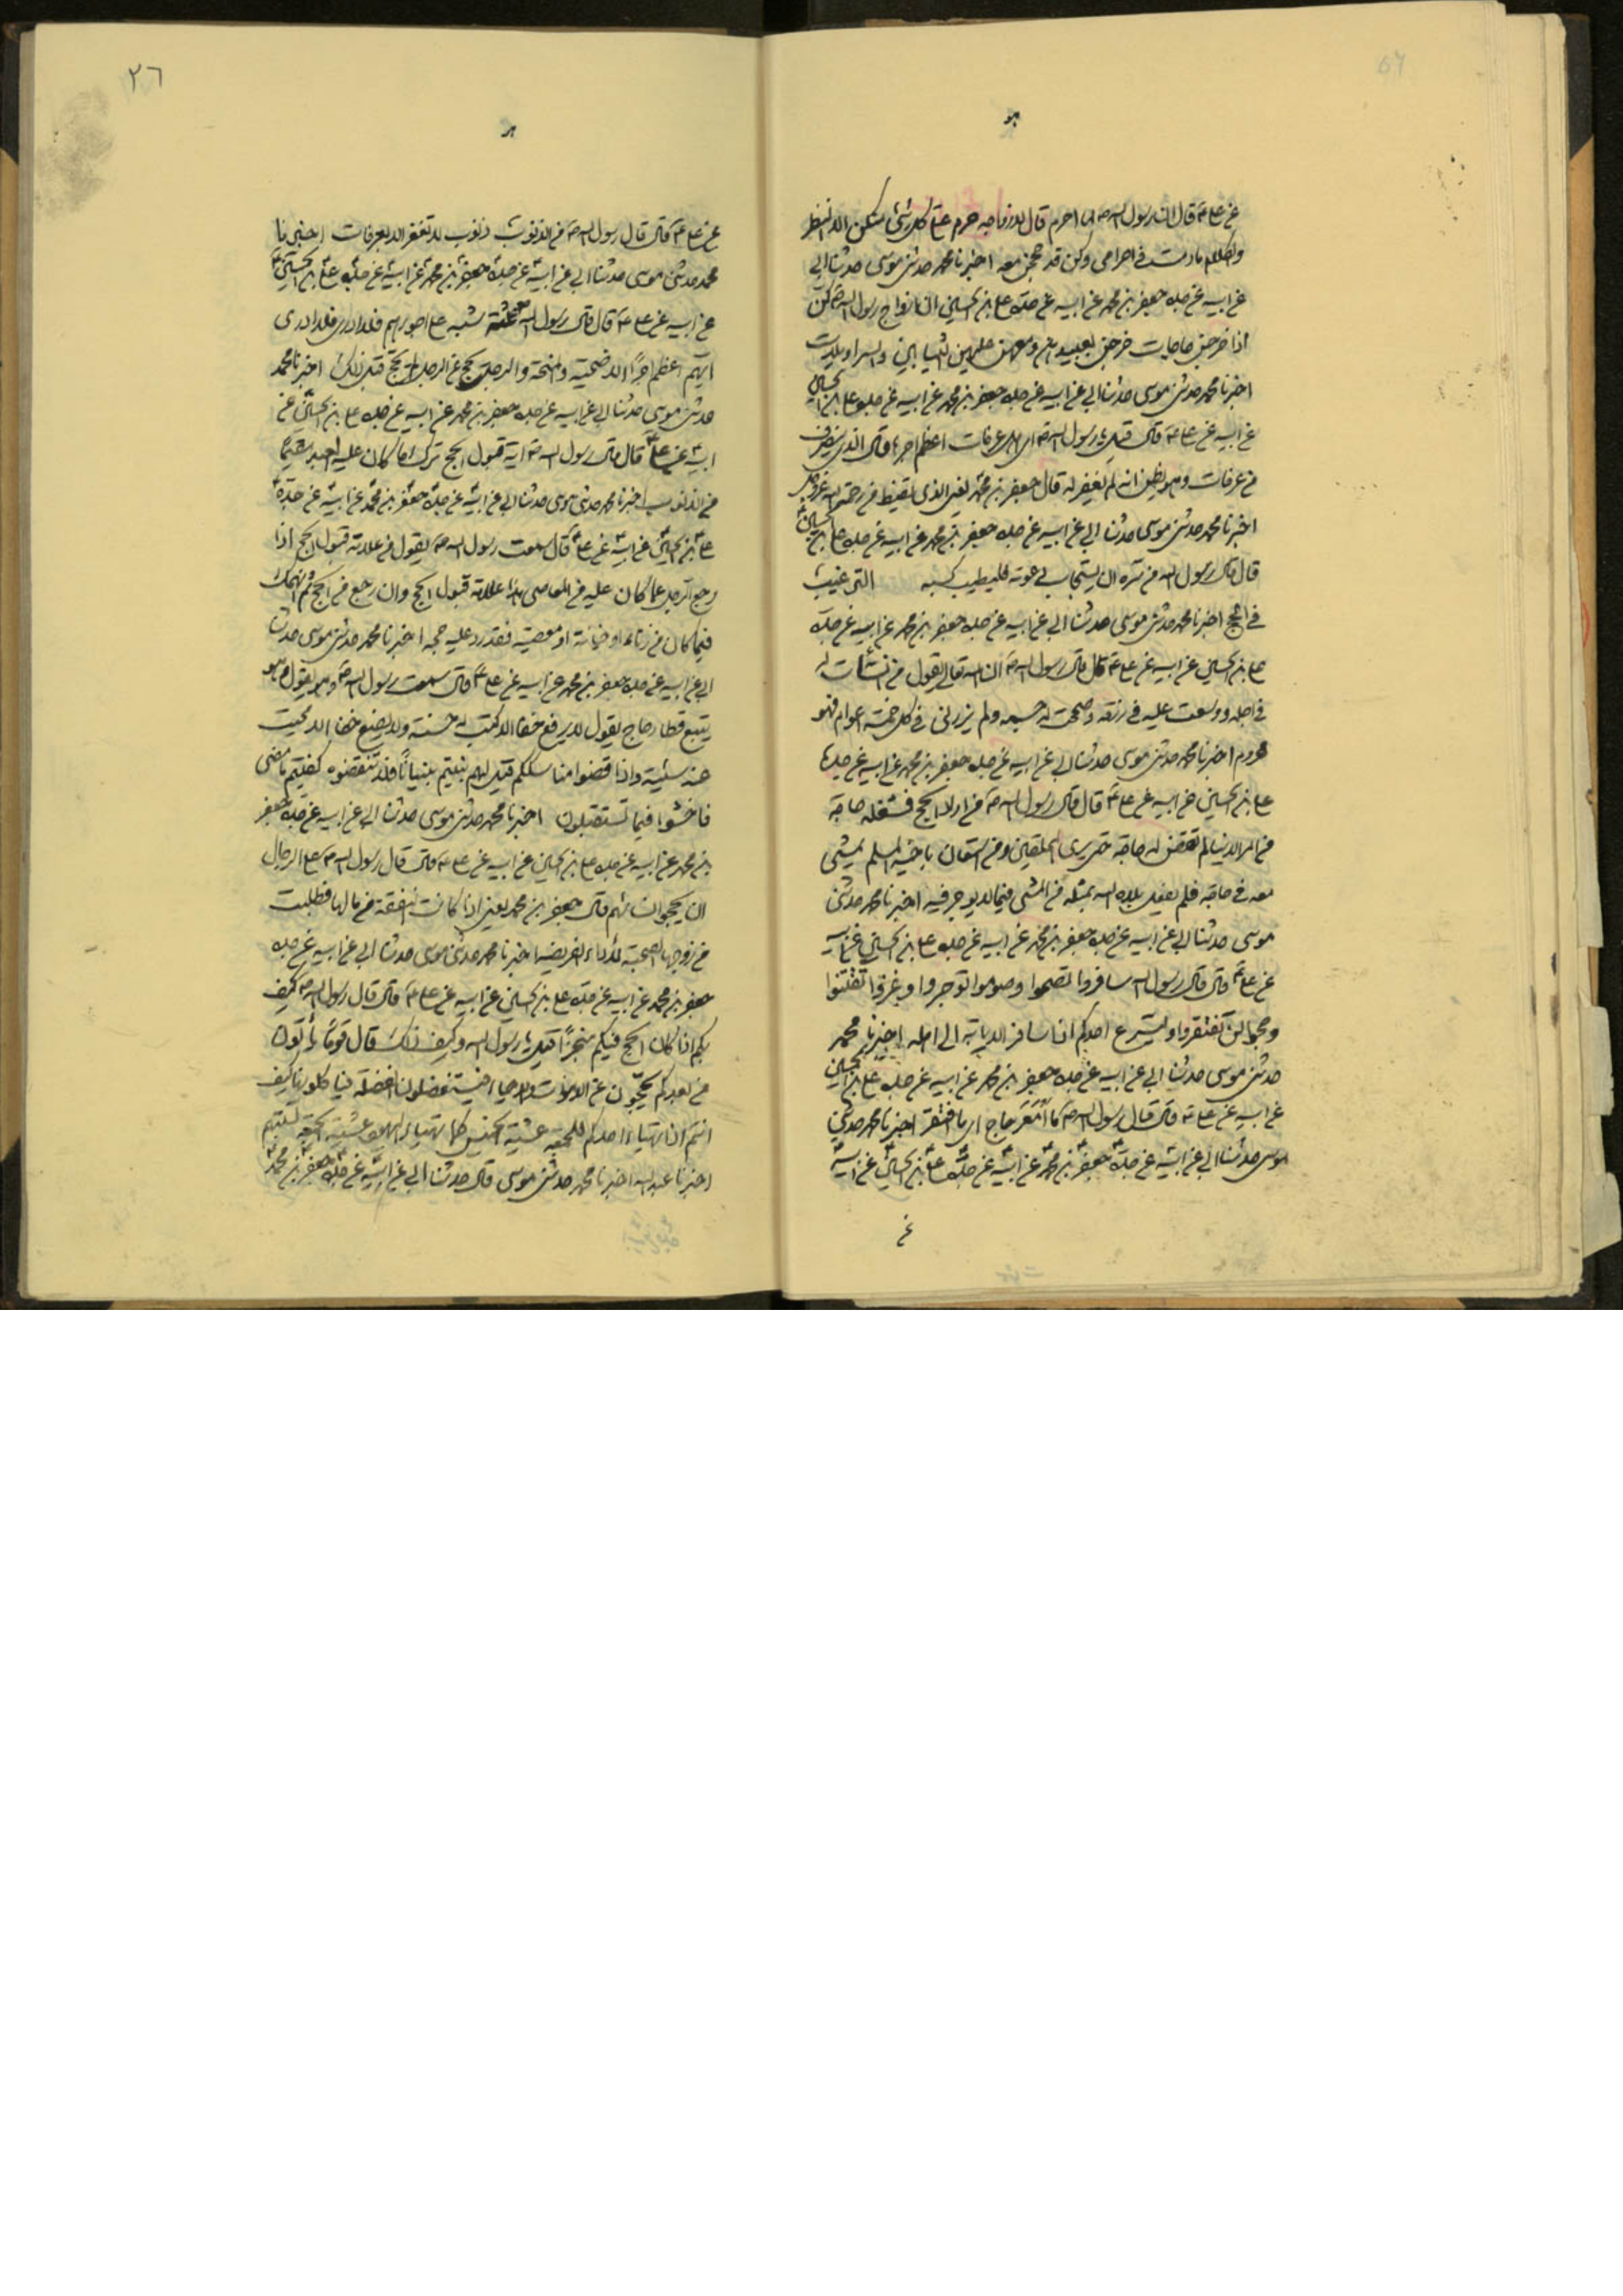 هو
عن علي ع قال ان رسول الله ص لما احرم قال لازواجه حرم علي كل شئ منكن الا النظر
والكلام ما دمت في احرامي وكن قد حججن معه اخبرنا محمد حدثني موسى حدثنا ابي
عن ابيه عن جده جعفر بن محمد عن ابيه عن جده علي بن الحسين ان ازواج رسول الله ص كن
اذا خرجن حاجات خرجن بعبيدهن معهن عليهن الثيابين والسراويلات
اخبرنا محمد حدثني موسى حدثنا ابي عن ابيه عن جده جعفر بن محمد عن ابيه عن جده علي بن الحسين
عن ابيه عن علي ع قال قيل يا رسول الله ص اي اهل عرفات اعظم اجرا قال الذي ينصرف
من عرفات وهو يظن انه لم يغفر له قال جعفر بن محمد يعني الذي يقنط من رحمة الله عز وجل
اخبرنا محمد حدثني موسى حدثنا ابي عن ابيه عن جده جعفر بن محمد عن ابيه عن جده علي بن الحسين
قال قال رسول الله من سره ان يستجاب دعوته فليطيب كسبه الترغيب
في الحج اخبرنا محمد حدثني موسى حدثنا ابي عن ابيه عن جده جعفر بن محمد عن ابيه عن جده
علي بن الحسين عن ابيه عن علي ع قال قال رسول الله ص ان الله تعالى يقول من انسأت له
في اجله ووسعت عليه في رزقه وصححت له جسمه ولم يزرني في كل خمسة اعوام فهو
محروم اخبرنا محمد حدثني موسى حدثنا ابي عن ابيه عن جده جعفر بن محمد عن ابيه عن جده
علي بن الحسين عن ابيه عن علي ع قال قال رسول الله ص من اراد الحج فشغله حاجة
من امر الدنيا لم تقض له حاجة حتى يرى المحلقين ومن استعان باخيه المسلم يمشي
معه في حاجة فلم يفعل بلاه الله بمثله من المشي فيما لا يوجر فيه اخبرنا محمد حدثني
موسى حدثنا ابي عن ابيه عن جده جعفر بن محمد عن ابيه عن جده علي بن الحسين عن ابيه
عن علي ع قال قال رسول الله سافروا تصحوا وصوموا توجروا واغزوا تغتنموا
وحجوا لن تفتقروا وليسرع احدكم اذا سافر الاياب الى اهله اخبرنا محمد
حدثني موسى حدثنا ابي عن ابيه عن جده جعفر بن محمد عن ابيه عن جده علي بن الحسين
عن ابيه عن علي ع قال قال رسول الله ص ما امعر حاج اي ما افتقر اخبرنا محمد حدثني
موسى حدثنا ابي عن ابيه عن جده جعفر بن محمد عن ابيه عن جده علي بن الحسين عن ابيه
عن
٢٦
عن علي ع قال قال رسول الله ص من الذنوب ذنوب لا تغفر الا بعرفات اخبرنا
محمد حدثني موسى حدثنا ابي عن ابيه عن جده جعفر بن محمد عن ابيه عن جده علي بن الحسين
عن ابيه عن علي ع قال قال رسول الله
ايهم اعظم اجرا الاضحية والمنحة والرجل يحج عن الرجل لم يحج قبل ذلك اخبرنا محمد
حدثني موسى حدثنا ابي عن ابيه عن جده جعفر بن محمد عن ابيه عن جده علي بن الحسين عن
ابيه عن علي ع قال قال رسول الله ص آية قبول الحج ترك ما كان عليه العبد مقيما
من الذنوب اخبرنا محمد حدثني موسى حدثنا ابي عن ابيه عن جده جعفر بن محمد عن ابيه عن جده
علي بن الحسين عن ابيه عن علي ع قال سمعت رسول الله ص يقول من علامة قبول الحج اذا
رجع الرجل عما كان عليه من المعاصي هذا علامة قبول الحج وان رجع من الحج ثم انهمك
فيما كان من زناء او خيانة او معصية فقد رد عليه حجه اخبرنا محمد حدثني موسى حدثنا
ابي عن ابيه عن جده جعفر بن محمد عن ابيه عن علي ع قال سمعت رسول الله ص وهو يقول وهو
يتبع قطار حاج يقول لا يرفع خفا الا كتب له حسنة ولا يضع خفا الا محيت
عنه سيئة واذا قضوا مناسككم قيل لهم بنيتم بنيانا فلا تنقضوه كفيتم ما مضى
فاحسنوا فيما تستقبلون اخبرنا محمد حدثني موسى حدثنا ابي عن ابيه عن جده جعفر
بن محمد عن ابيه عن جده علي بن الحسين عن ابيه عن علي ع قال قال رسول الله ص على الرجال
ان يحجوا نسائهم قال جعفر بن محمد يعني اذا كانت النفقة من مالها فطلبت
من زوجها الصحبة لاداء الفريضة اخبرنا محمد حدثني موسى حدثنا ابي عن ابيه عن جده
جعفر بن محمد عن ابيه عن جده علي بن الحسين عن ابيه عن علي ع قال قال رسول الله ص كيف
بكم اذا كان الحج فيكم متجرا قيل يا رسول الله وكيف ذلك قال قوما يأتون
من بعدكم يحجون عن الاموات والاحياء فيستفضلون الفضلة فيأكلونها كيف
انتم اذا تهيا احدكم للجمعة عشية الخميس كما تهيا اليهود عشية الجمعة لسبتهم
اخبرنا عبد الله اخبرنا محمد حدثني موسى قال حدثنا ابي عن ابيه عن جده جعفر بن محمد